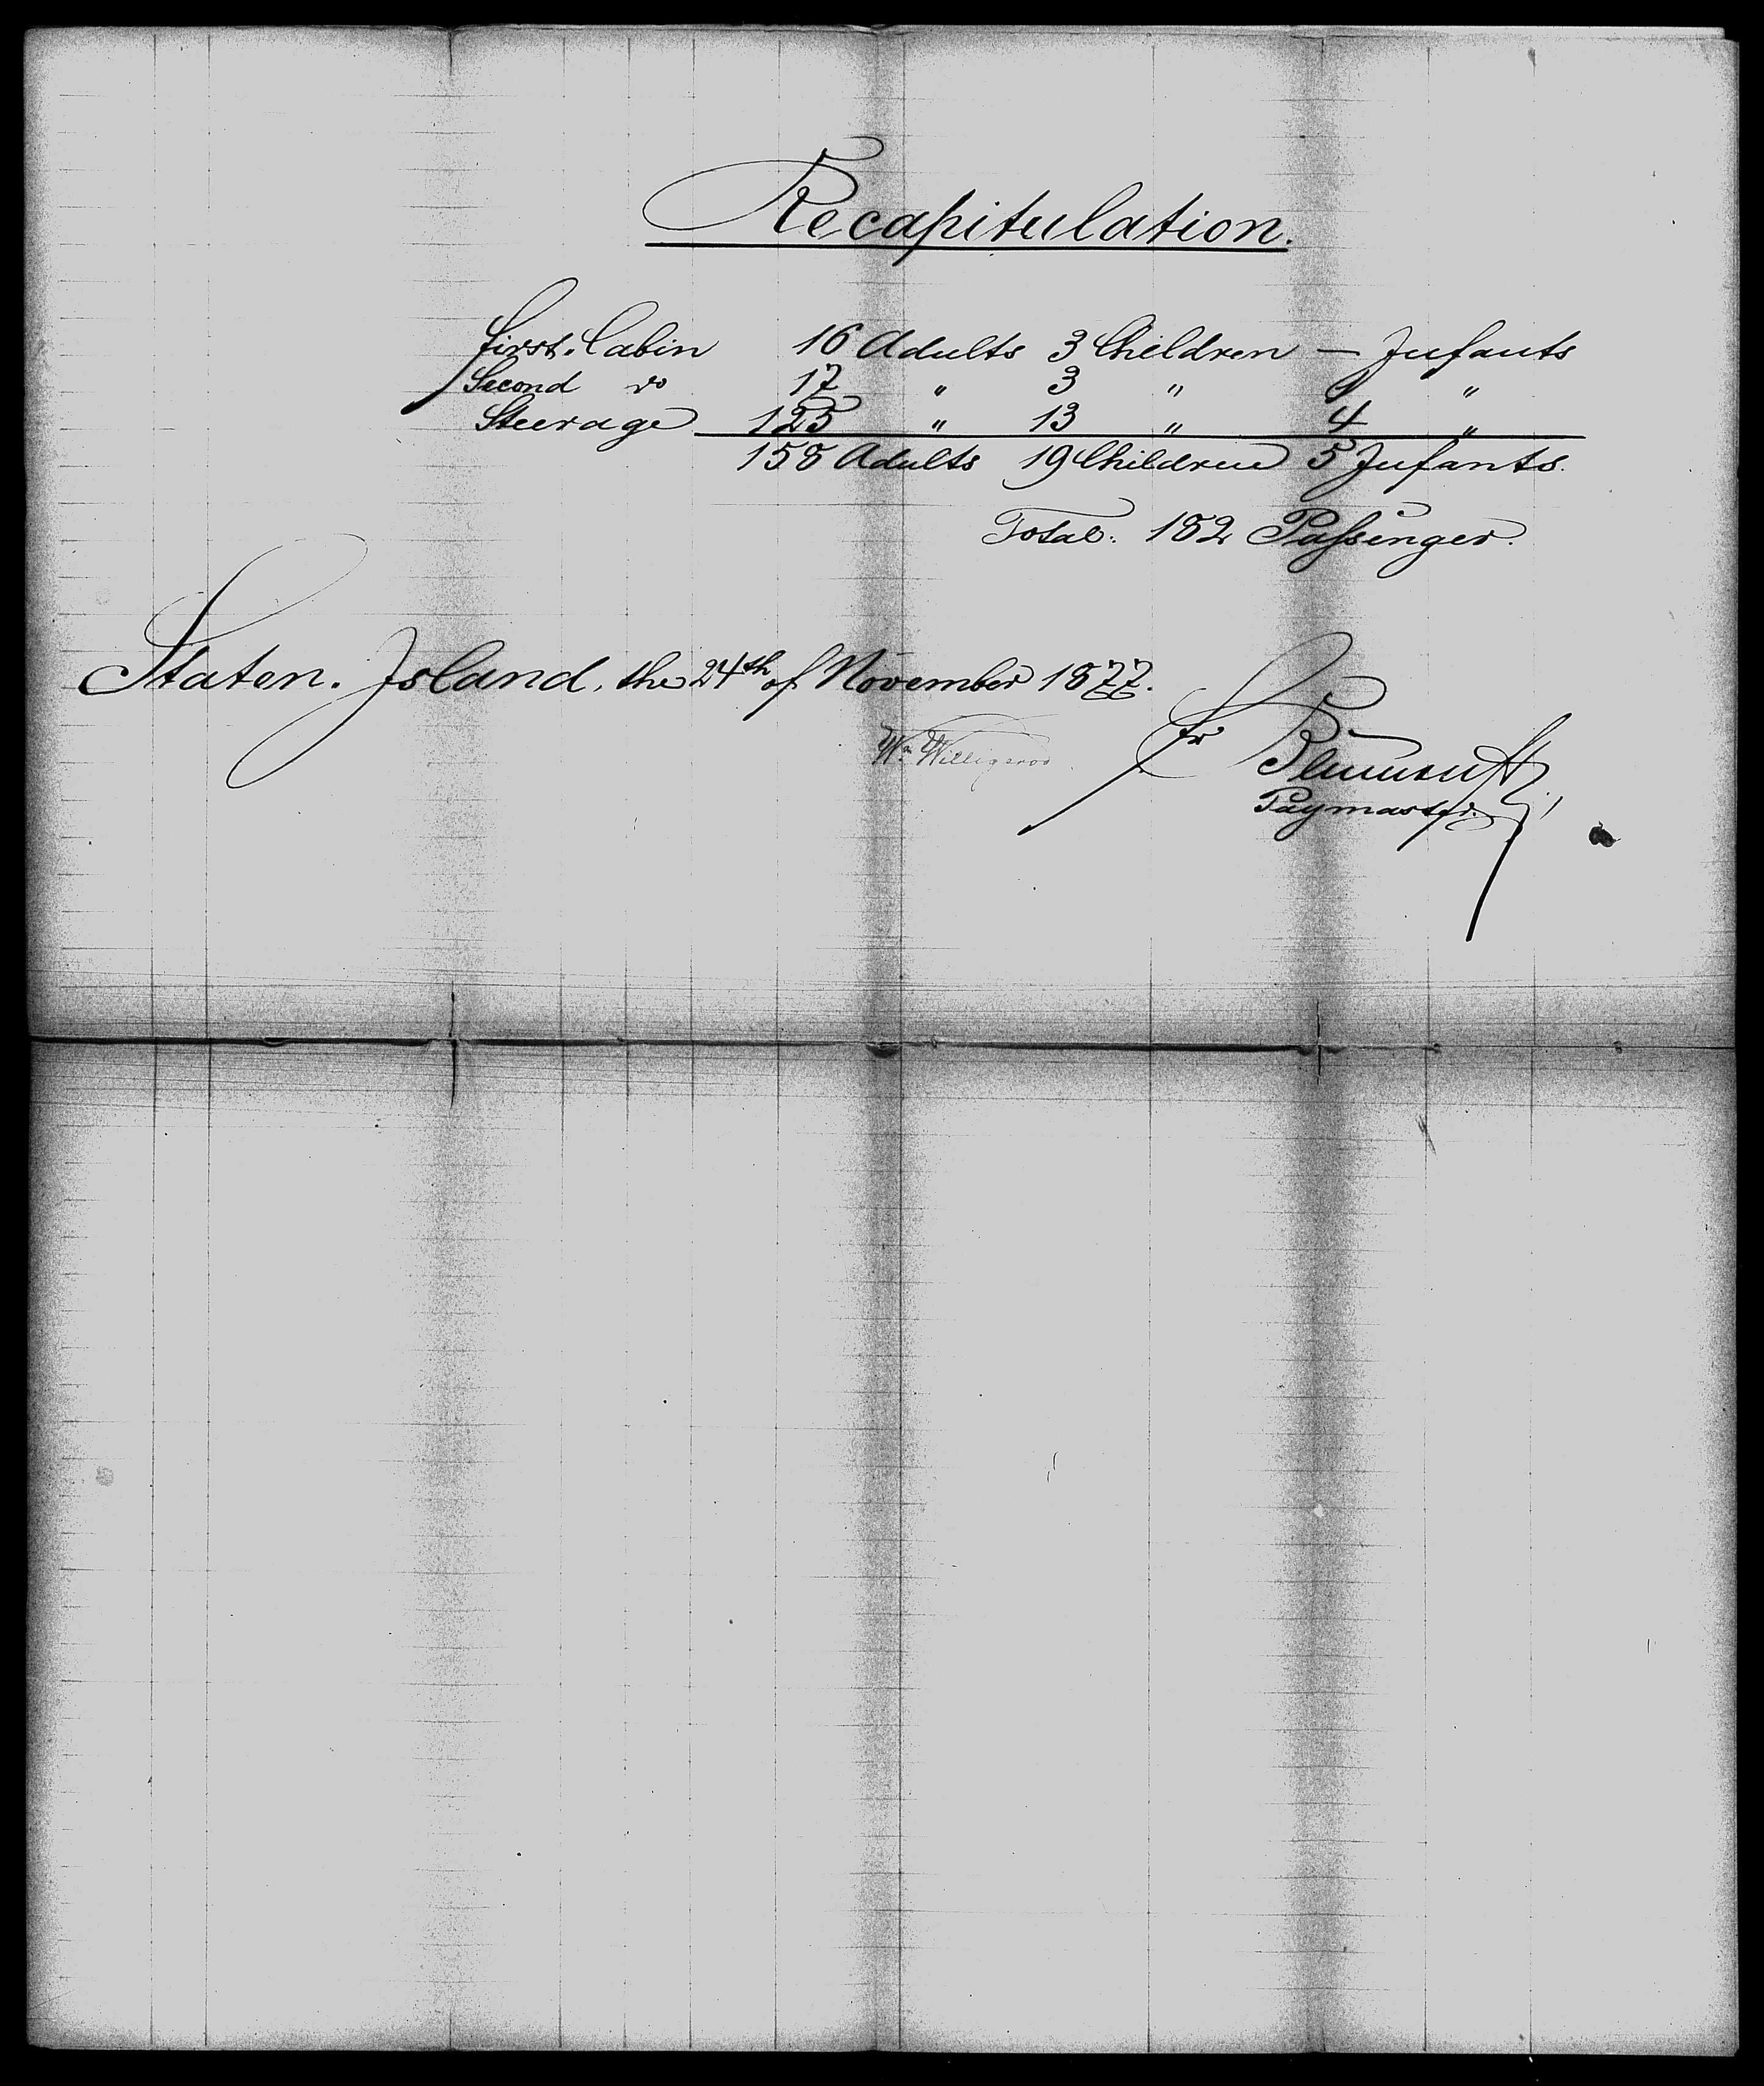 Recapitulation.
First. Cabin 16 Adults 3 Children — Infants
Second do 17 " 3 " 1 "
Steerage 125 " 13 " 4 "
158 Adults 19 Children 5 Infants.
Total: 182 Passenger.
Staten. Island, the 24th of November 1877.
Wm Willigerod
Fr
Paymaster.